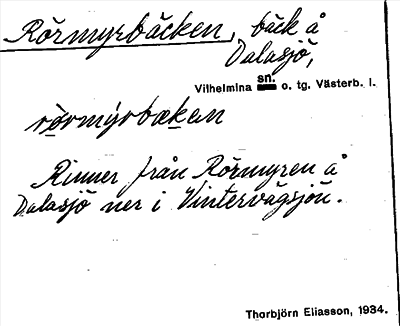 Rörmyrbäcken, bäck å
Dalasjö,
sn.
Vilhelmina o. tg. Västerb. l.
rörmýrbækan
Rinner från Rörmyren å
Dalasjö ner i Vintervägsjön.
Thorbjörn Eliasson, 1934.